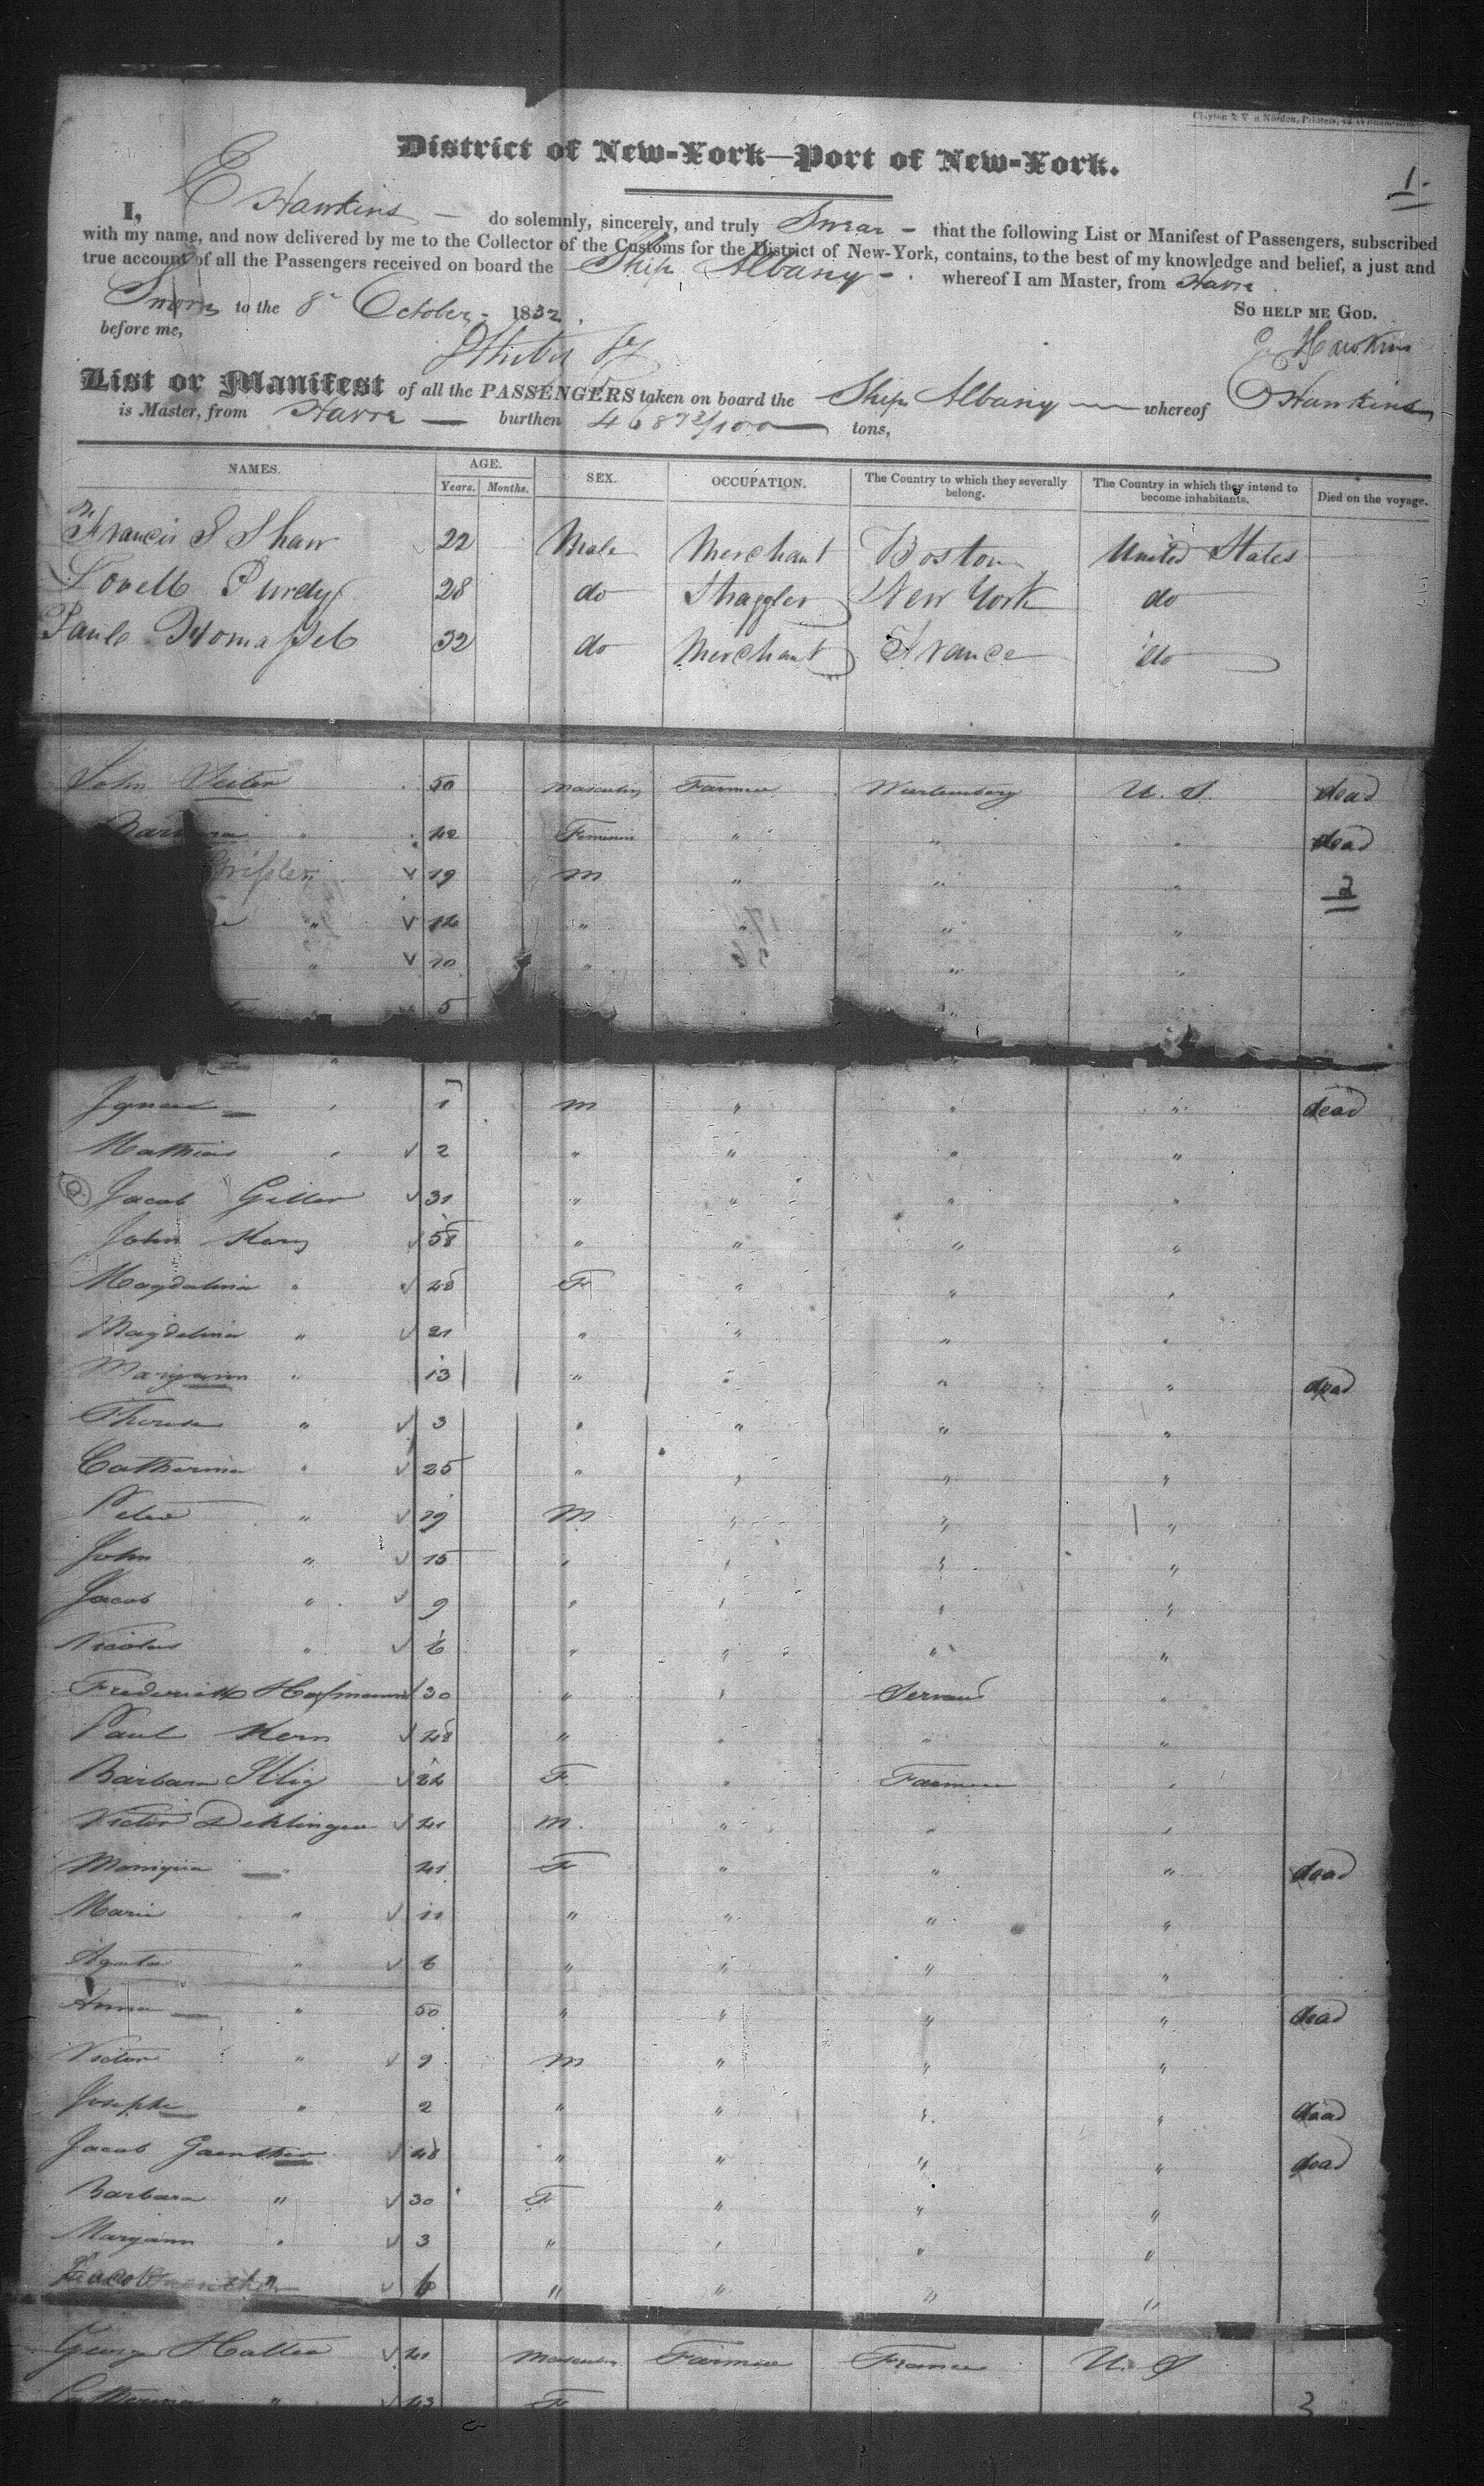 District of New-York—Port of New-York.
1.
I, E Hawkins — do solemnly, sincerely, and truly Swear — that the following List or Manifest of Passengers, subscribed
with my name, and now delivered by me to the Collector of the Customs for the District of New-York, contains, to the best of my knowledge and belief, a just and
true account of all the Passengers received on board the Ship Albany — whereof I am Master, from Havre
Sworn to the 8 October 1832. So help me God.
before me, E Hawkins
List or Manifest of all the PASSENGERS taken on board the Ship Albany — whereof E Hawkins
is Master, from Havre — burthen 468 73/100 tons,
NAMES. AGE. SEX. OCCUPATION. The Country to which they severally belong. The Country in which they intend to become inhabitants. Died on the voyage.
Years. Months.
Francis S Shaw 22 Male Merchant Boston United States
Lovell Purdy 28 do Straggler New York do
Paul 32 do Merchant France do
John 50 Masculin Farmer Wurtemberg U. S. dead
Barbara " 42 Feminin " " " dead
19 m " " " 2
" 12 " " " "
" 10 " " " "
5
Ignace 1 m " " " dead
Mathias 2 " " " "
Jacob Geller 31 " " " "
John Kern 58 " " " "
Magdalena " 48 F " " "
Magdelina " 21 " " " "
Maryann " 13 " " " " dead
Therese " 3 " " " "
Catherina " 25 " " " "
Peter " 19 M " " "
John " 15 " " " "
Jacob " 9 " " " "
Nicolas " 6 " " " "
Frederick Hofmann 30 " " Servant "
Paul Kern 48 " " " "
Barbara Illig 22 F " Farmer "
Victor Deklinger 41 m. " " "
Moniqua 41 F " " " dead
Marie " 11 " " " "
Agatha " 6 " " " "
Anna " 50 " " " " dead
Victor " 9 m " " "
Josephe " 2 " " " " dead
Jacob Guenther 48 " " " " dead
Barbara " 30 F " " "
Maryann " 3 " " " "
Jacob 6 " " " "
George Halter 41 Masculin Farmer France U. S
Catherina " 43 F 3